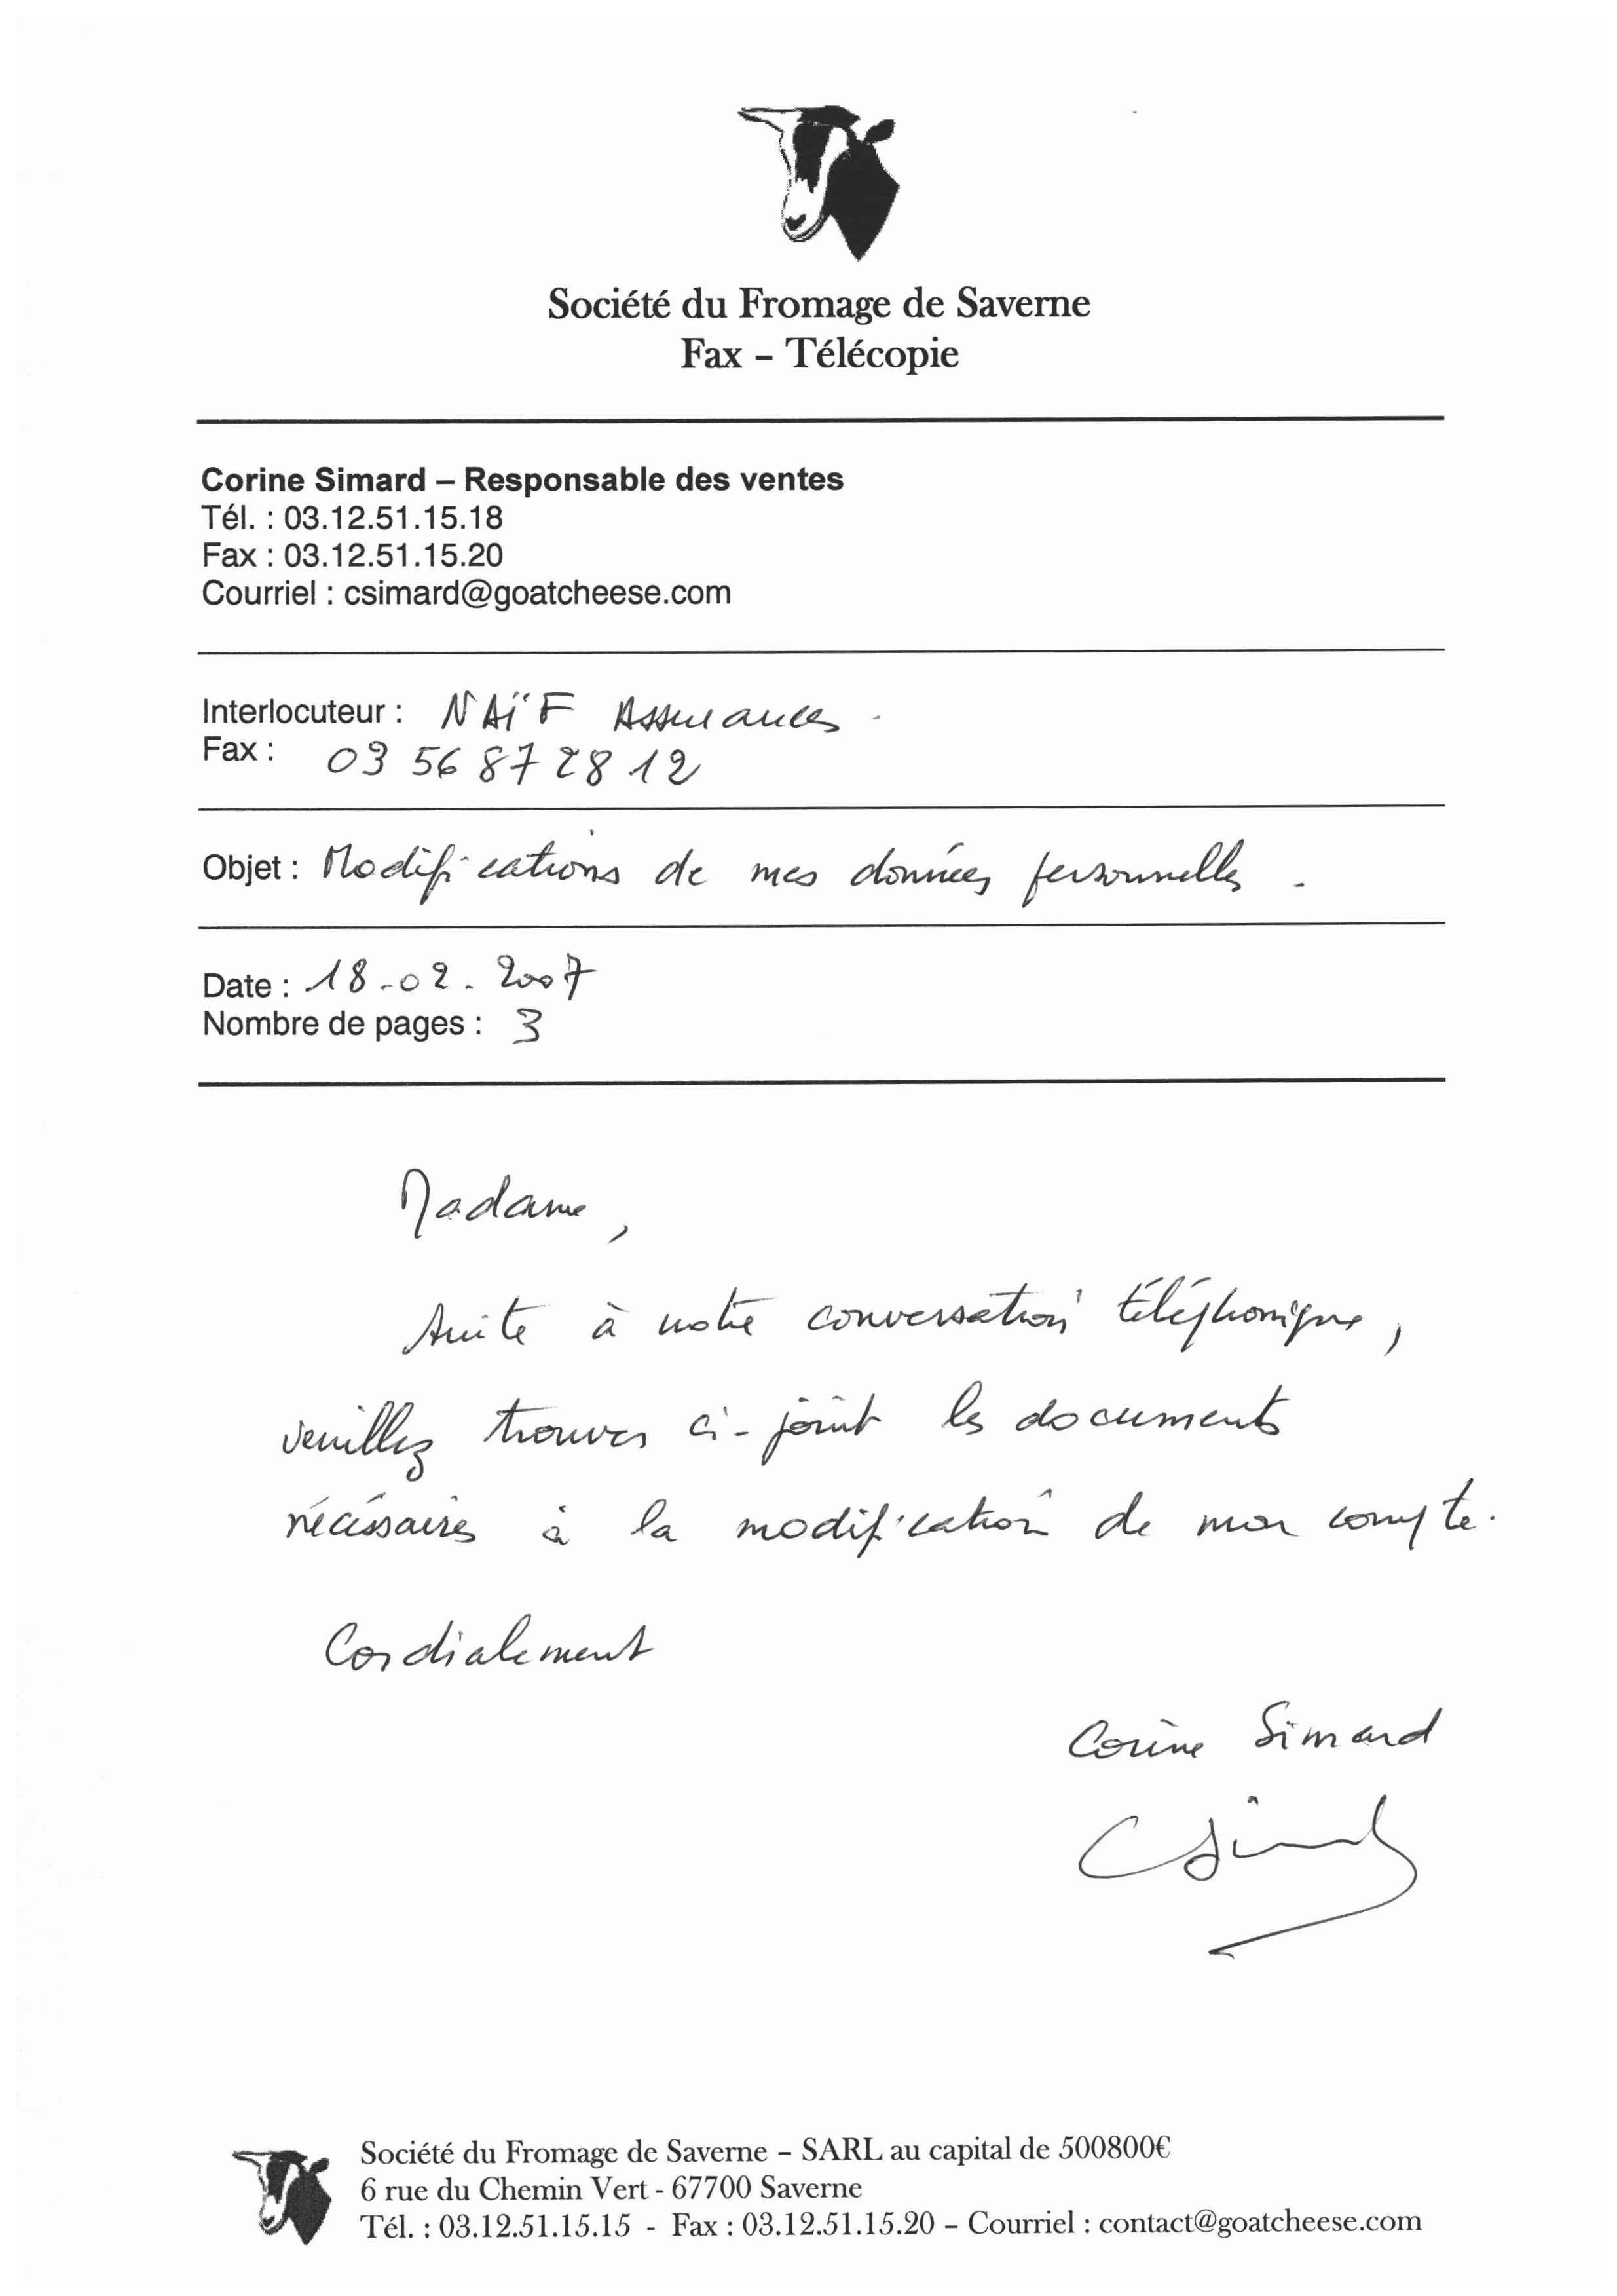 Société du Fromage de Saverne
Fax – Télécopie
Corine Simard – Responsable des ventes
Tél. : 03.12.51.15.18
Fax : 03.12.51.15.20
Courriel : csimard@goatcheese.com
Interlocuteur : NAÏF Assurances.
Fax : 03 56 87 28 12
Objet : Modifications de mes données personnelles.
Date : 18-02-2007
Nombre de pages : 3
Madame,
Suite à notre conversation téléphonique,
veuillez trouver ci-joint les documents
nécessaires à la modification de mon compte.
Cordialement
Corine Simard
CSimard
Société du Fromage de Saverne – SARL au capital de 500800€
6 rue du Chemin Vert - 67700 Saverne
Tél. : 03.12.51.15.15 - Fax : 03.12.51.15.20 – Courriel : contact@goatcheese.com